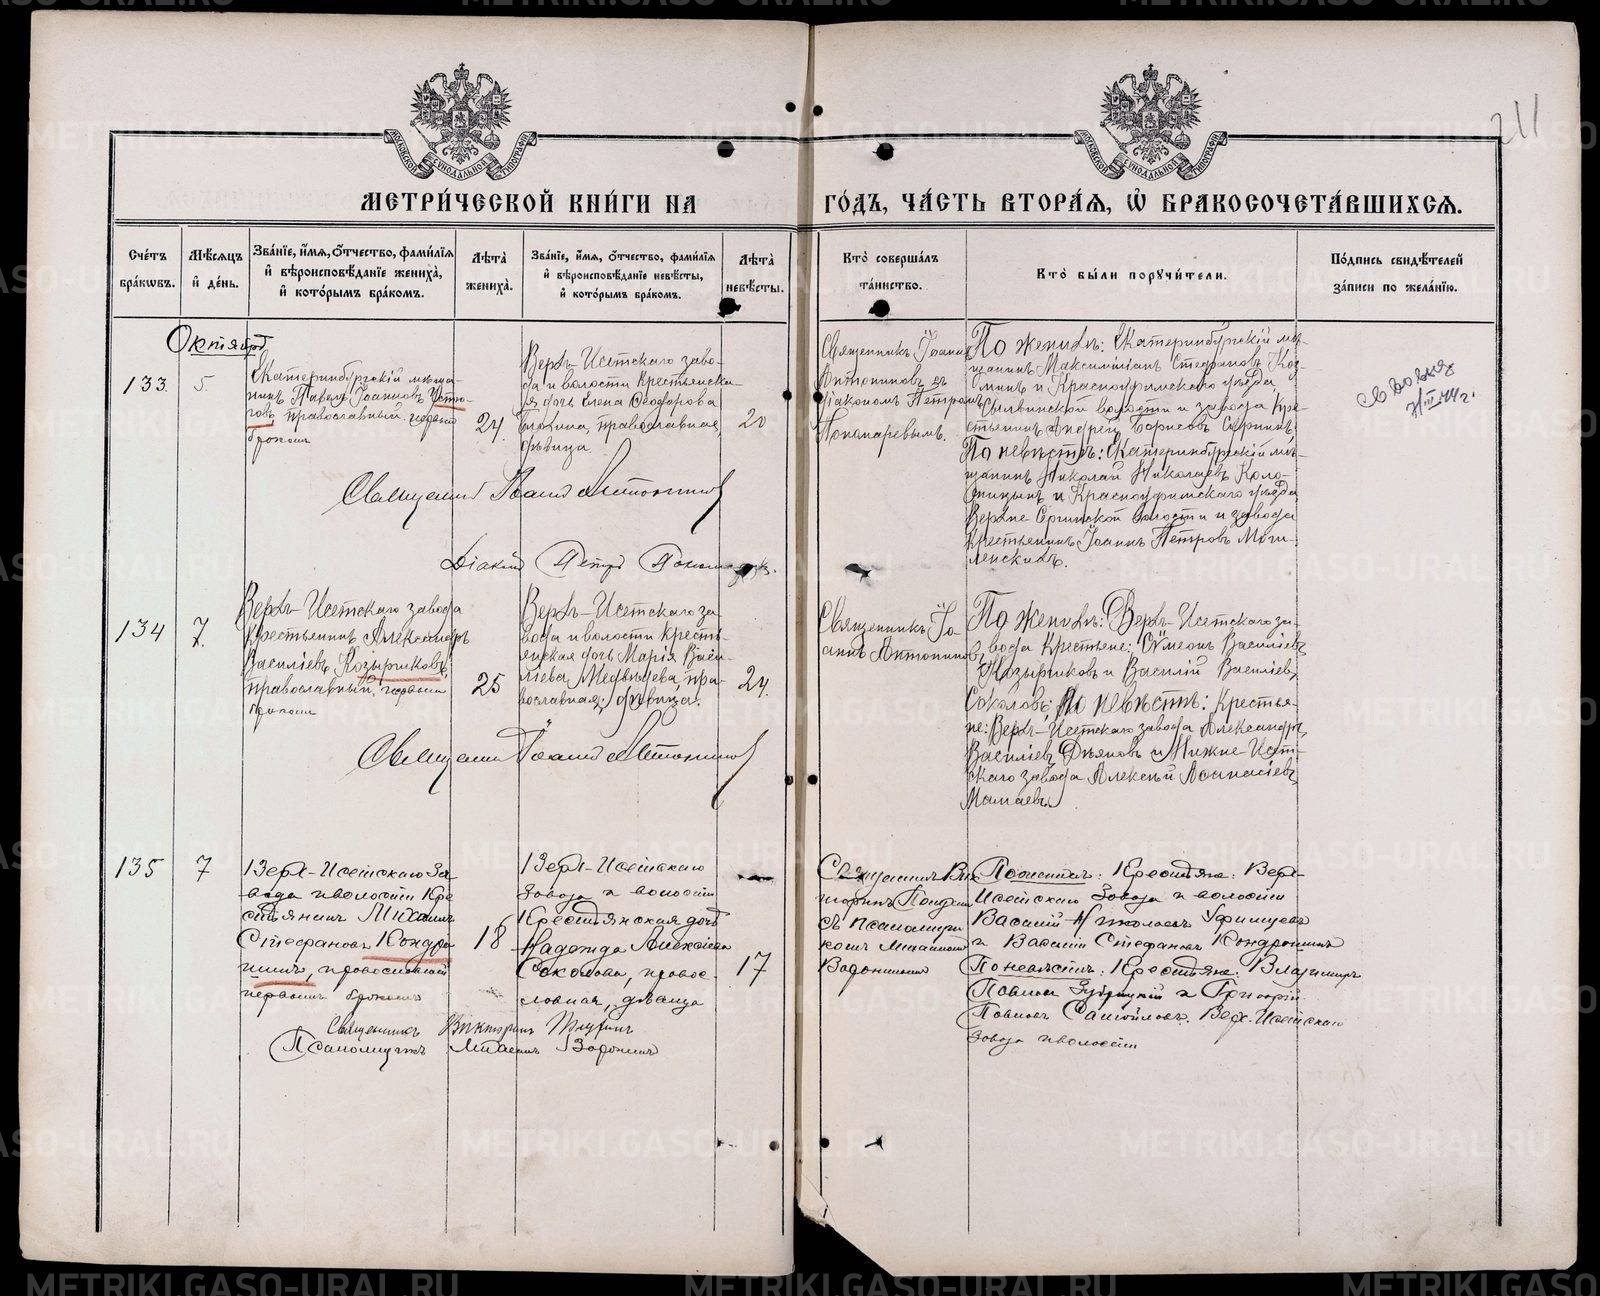 МОСКОВСКОЙ СѴНОДАЛЬНОЙ ТИПОГРАФІИ
МОСКОВСКОЙ СѴНОДАЛЬНОЙ ТИПОГРАФІИ
211
МЕТРИ́ЧЕСКОЙ КНИ́ГИ НА
ГО́ДЪ, ЧА́СТЬ ВТОРА́Я, Ѿ БРАКОСОЧЕТА́ВШИХСЯ.
Сче́тъ бра́кѡвъ.
Мѣ́сяцъ и҆ де́нь.
Зва́нїе, и҆́мя, ѻ҆́тчество, фами́лїя и҆ вѣроисповѣ́данїе жениха̀, и҆ кото́рымъ бра́комъ.
Лѣ́та жениха̀.
Зва́нїе, и҆́мя, ѻ҆́тчество, фами́лїя и҆ вѣроисповѣ́данїе невѣ́сты, и҆ кото́рымъ бра́комъ.
Лѣ́та невѣ́сты.
Кто̀ соверша́лъ та́инство.
Кто̀ бы́ли порꙋчи́тели.
По́дпись свидѣ́телей за́писи по жела́нїю.
Октябрь
133.
5.
Екатеринбургскій мѣща-
нинъ Павелъ Іоанновъ
православный
бракомъ
24.
Верхъ-Исетскаго заво-
да и волости Крестьянска-
я дочь Елена Ѳеодорова
православная,
дѣвица.
20
Священникъ Іоаннъ
Антониновъ съ
діакономъ Петромъ
Пономаревымъ.
По женихѣ: Екатеринбургскій мѣ-
щанинъ Максимиліанъ Стефановъ Коз-
минъ и Красноуфимскаго уѣзда
Сылвинской волости и завода Кре-
стьянинъ Андрей
По невѣстѣ: Екатеринбургскій мѣ-
щанинъ Николай Николаевъ Коло-
и Красноуфимскаго уѣзда
Верхне Сергинской волости и завода
Крестьянинъ Іоаннъ Петровъ Моги-
ленскихъ.
44 г.
Священникъ Іоаннъ Антониновъ
Діаконъ Петръ Пономаревъ.
134
7.
Верхъ-Исетскаго завода
Крестьянинъ Александръ
Василіевъ Козырчиковъ,
православный, первымъ
бракомъ
25
Верхъ-Исетскаго за
вода и волости Кресть-
янская дочь Марія Васи-
ліева Медвѣдева, пра-
вославная, дѣвица.
24.
Священникъ Іо-
аннъ Антониновъ
По женихѣ: Верхъ-Исетскаго за-
вода Крестьяне: Сѵмеонъ Василіевъ
Козырчиковъ и Василій Василіевъ
Соколовъ; По невѣстѣ: Крестья-
не: Верхъ-Исетскаго завода Александръ
Василіевъ и Нижне-Исет-
скаго завода Алексѣй Аѳанасіевъ
Мамаевъ.
Священникъ Іоаннъ Антониновъ
135
7
Верх-Исетскаго За-
вода и волости Кре
стьянинъ Михаилъ
Стефановъ Кондра
шинъ, православный
первымъ бракомъ
18
Верх-Исетскаго
Завода и волости
Крестьянская дочь
Надежда Алексіева
Соколова, правос-
лавная, дѣвица
17
Священникъ Вик
торинъ
съ Псаломщи
комъ
По женихѣ: Крестьяне: Верх-
Исетскаго Завода и волости
Василій Николаевъ Уфимцевъ
и Василій Стефановъ Кондрашинъ
По невѣстѣ: Крестьяне: Владиміръ
Павловъ Зубрицкій и Григорій
Павловъ Самойловъ Верх-Исетскаго
Завода и волости
Священникъ Викторинъ
Псаломщикъ
METRIKI.GASO-URAL.RU